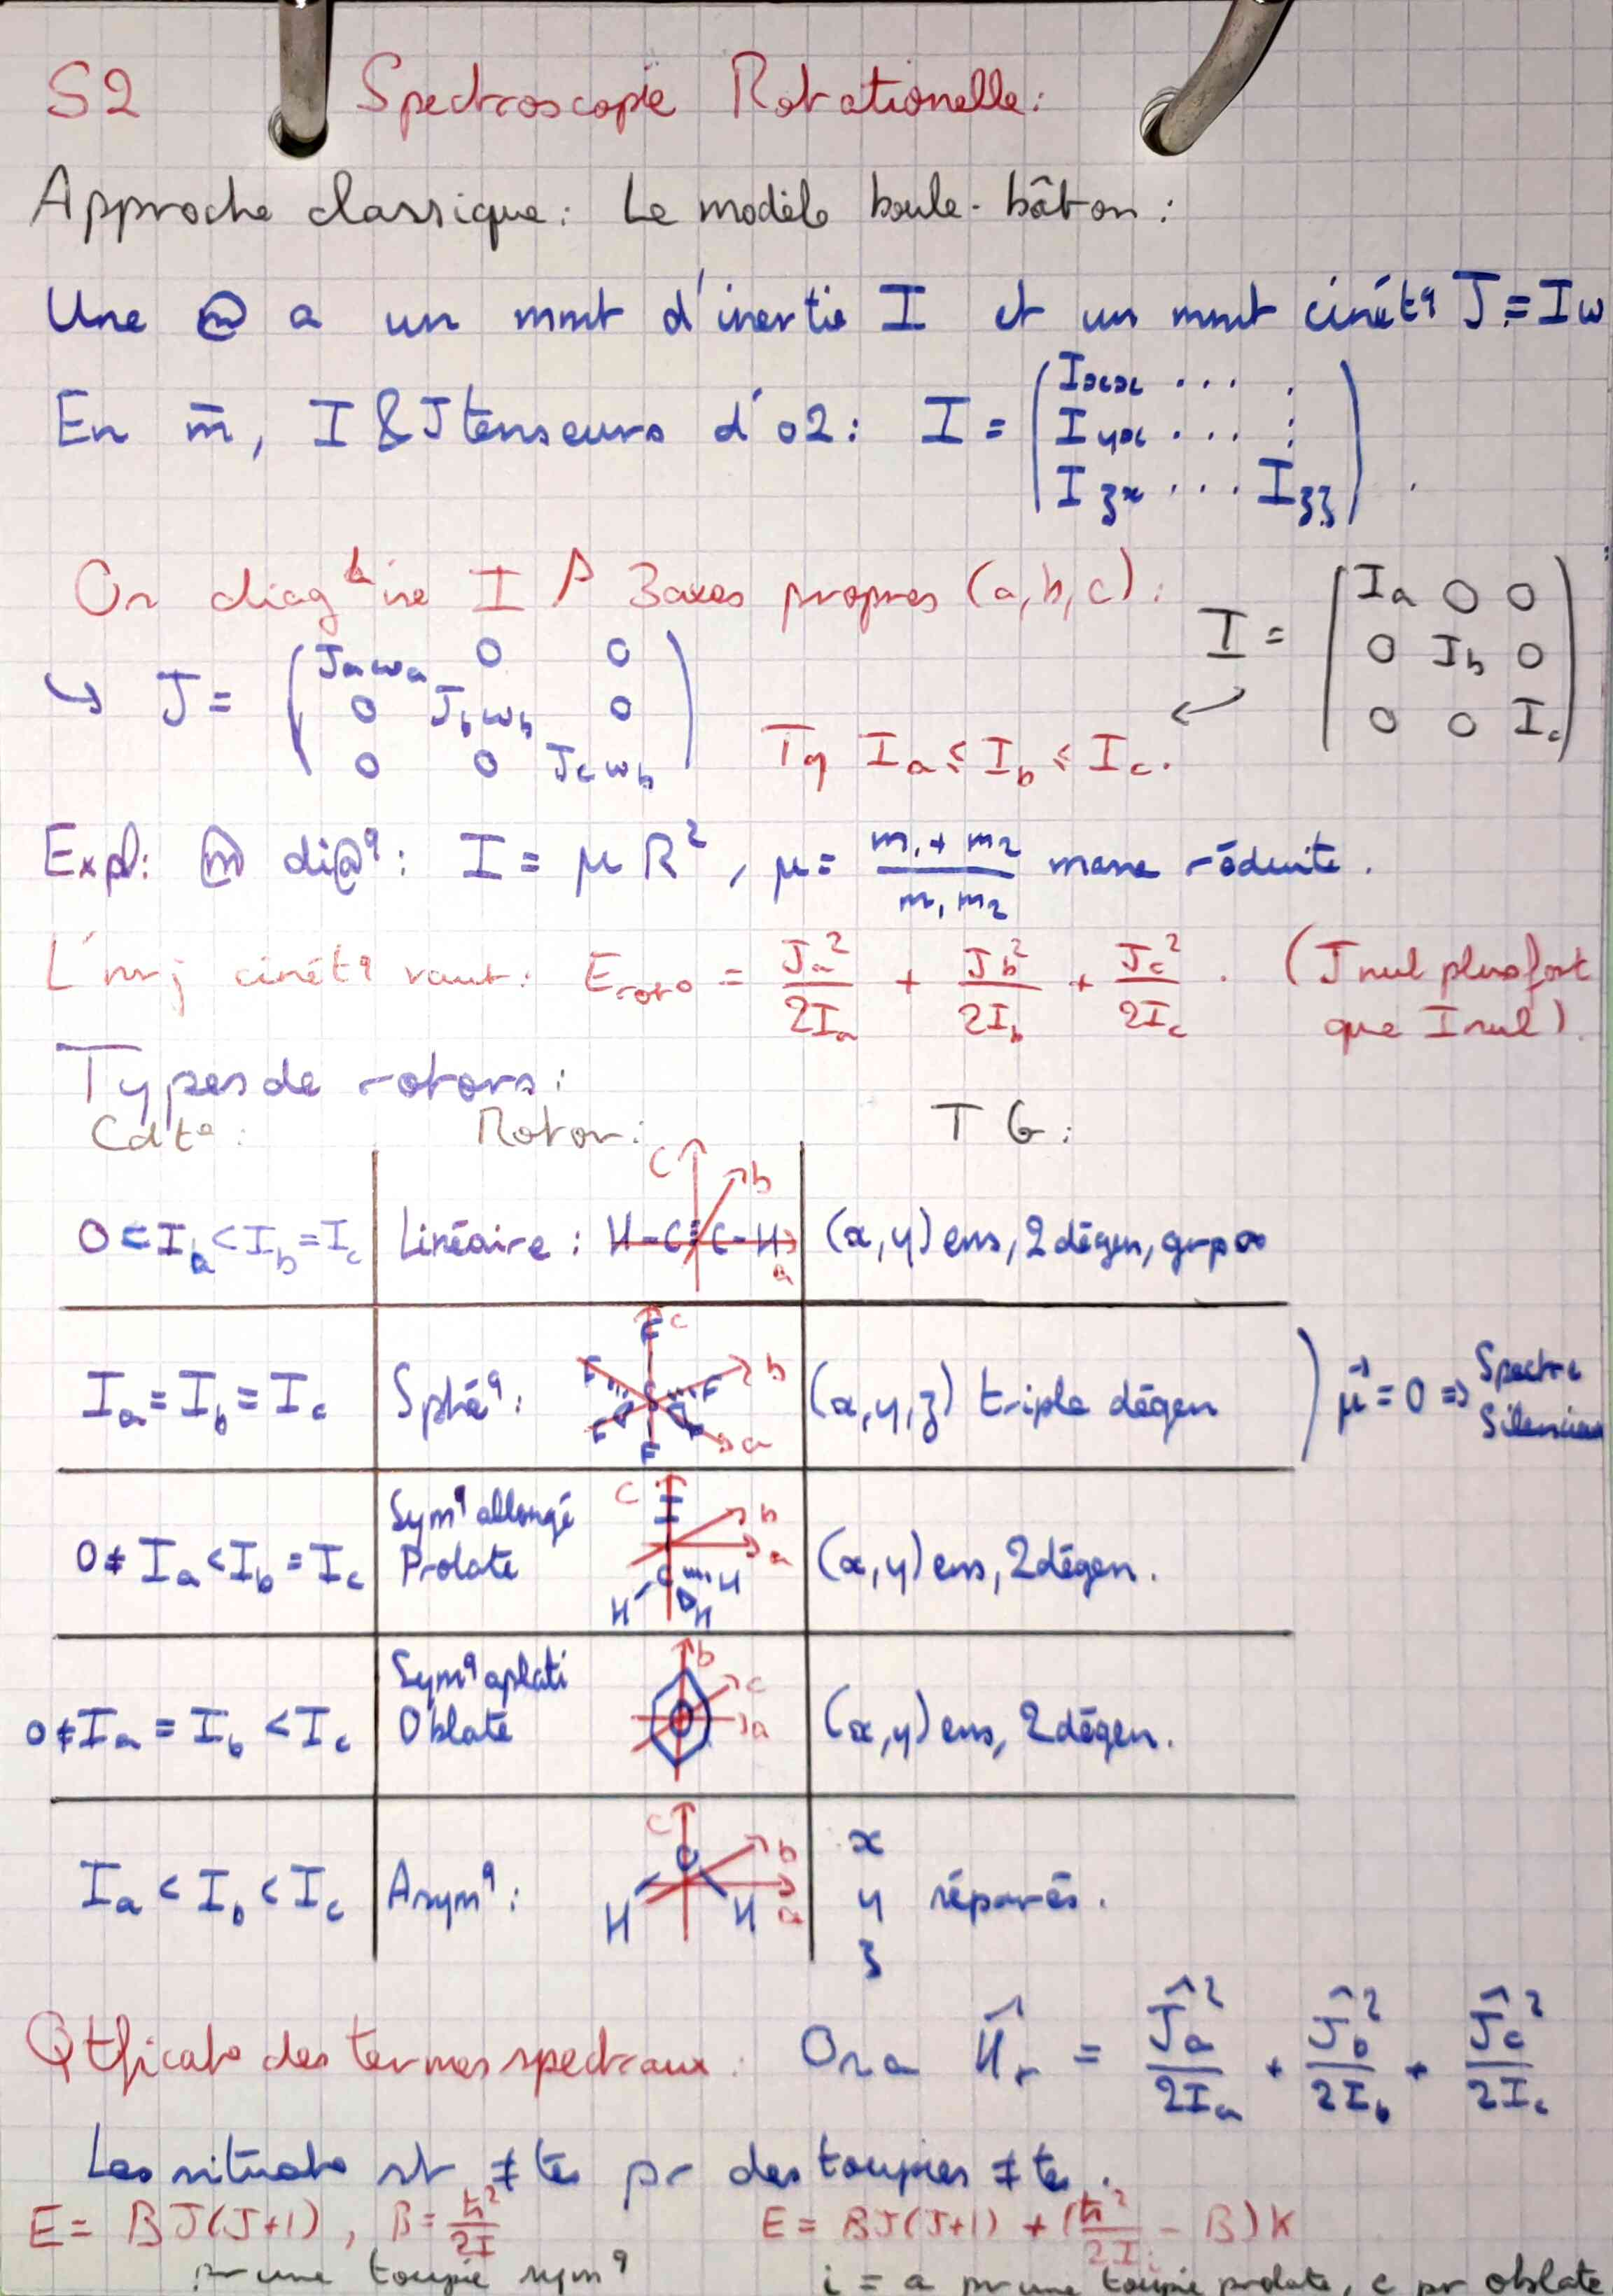 S2 Spectroscopie Rotationelle:
Approche classique: Le modèle boule-bâton:
Une ⓜ a un mmt d'inertie I et un mmt cinétq J=Iω
En m̄, I & J tenseurs d'o2: I = (Ixx ... . / Iyx ... : / Izx ... Izz).
On diagLise I → 3 axes propres (a,b,c): I = (Ia 0 0 / 0 Ib 0 / 0 0 Ic)
↳ J = (Jaωa 0 0 / 0 Jbωb 0 / 0 0 Jcωb) Tq Ia ≤ Ib ≤ Ic.
Expl: ⓜ di@q: I = μR², μ = (m1 + m2)/(m1 m2) masse réduite.
L'nrj cinétq vaut: Eroto = Ja²/2Ia + Jb²/2Ib + Jc²/2Ic. (J nul plus fort
que I nul)
Types de rotors:
Cdto: Rotor: TG:
0 = Ia < Ib = Ic Linéaire: H-C≡C-H a b c (x,y) ens, 2 dégen, grp ∞
Ia = Ib = Ic Sphéq: F F F F F F S a b c (x,y,z) triple dégen ) μ⃗ = 0 ⇒ Spectre
Silencieux
0 ≠ Ia < Ib = Ic Symq allongé
Prolate C H H H a b c (x,y) ens, 2 dégen.
0 ≠ Ia = Ib < Ic Symq aplati
Oblate a b c (x,y) ens, 2 dégen.
Ia < Ib < Ic Asymq: O H H a b c x
y séparés.
z
Qtficato des termes spectraux: On a Ĥr = Ĵa²/2Ia + Ĵb²/2Ib + Ĵc²/2Ic
Les situato st ≠tes pr des toupies ≠tes.
E = BJ(J+1), B = ħ²/2I E = BJ(J+1) + (ħ²/2Ii - B)K
pr une toupie symq i = a pr une toupie prolate, c pr oblate